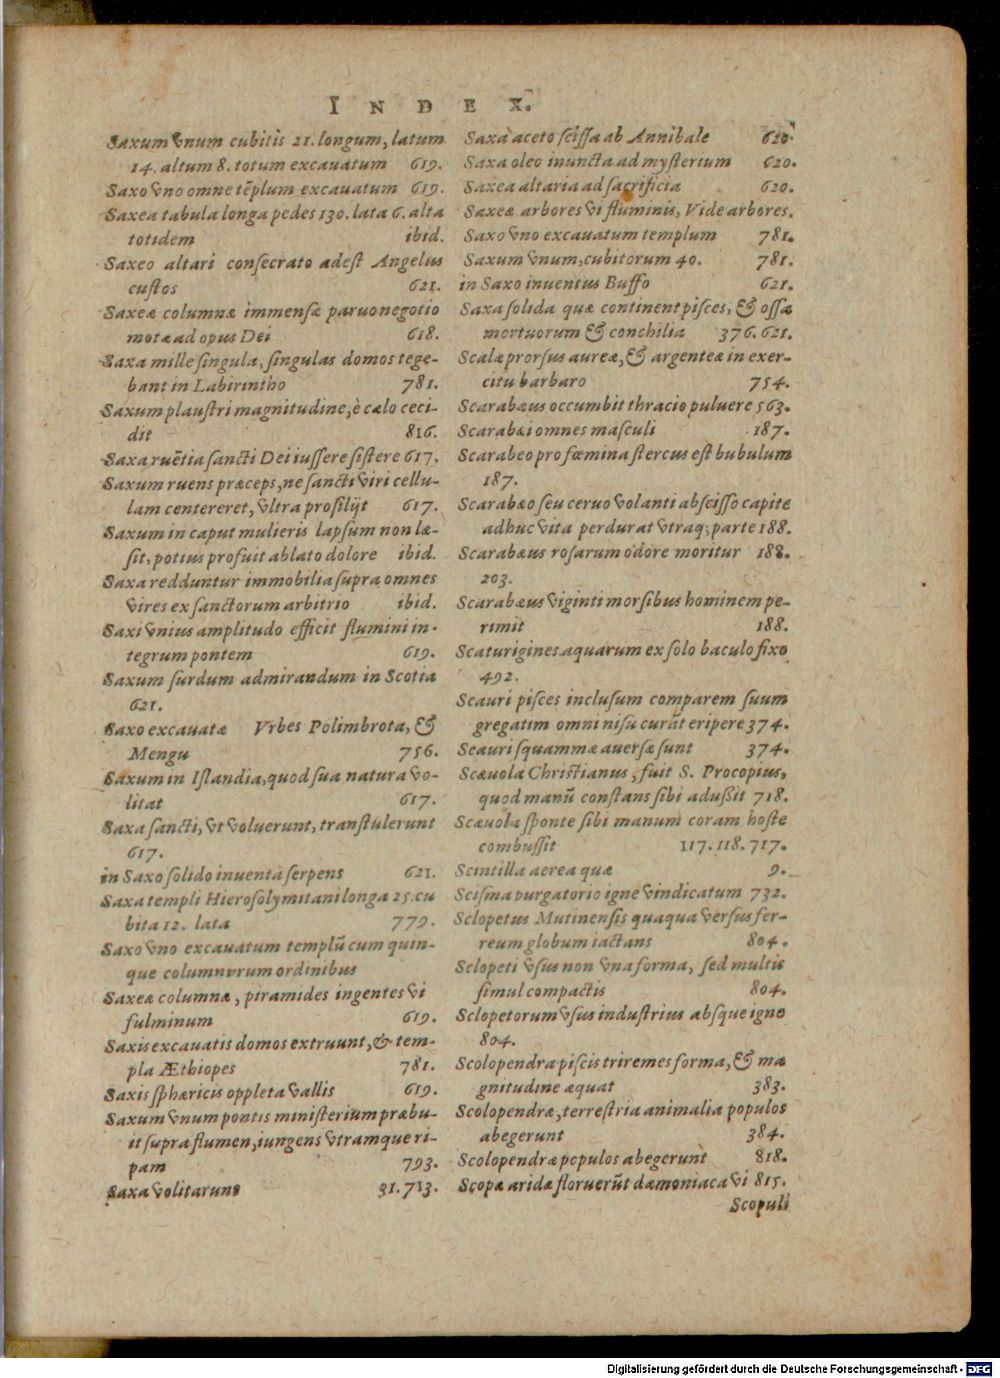 INDEX.
Saxum vnum cubitis 21. longum, latum
14. altum 8. totum excauatum 619.
Saxo vno omne tẽplum excauatum 619.
Saxea tabula longa pedes 130. lata 6. alta
totidem ibid.
Saxeo altari conſecrato adeſt Angelus
cuſtos 621.
Saxeæ columnæ immenſæ paruo negotio
motæ ad opus Dei 618.
Saxa mille ſingula, ſingulas domos tege-
bant in Labirintho 781.
Saxum plauſtri magnitudine, è cælo ceci-
dit 816.
Saxa ruẽtia ſancti Dei iuſſere ſiſtere 617.
Saxum ruens præceps, ne ſancti viri cellu-
lam contereret, vltra proſilijt 617.
Saxum in caput mulieris lapſum non læ-
ſit, potius profuit ablato dolore ibid.
Saxa redduntur immobilia ſupra omnes
vires ex ſanctorum arbitrio ibid.
Saxi vnius amplitudo efficit flumini in-
tegrum pontem 619.
Saxum ſurdum admirandum in Scotia
621.
Saxo excauatæ Vrbes Polimbrota, &
Mengu 756.
Saxum in Iſlandia, quod ſua natura vo-
litat 617.
Saxa ſancti, vt voluerunt, tranſtulerunt
617.
in Saxo ſolido inuenta ſerpens 621.
Saxa templi Hieroſolymitani longa 25. cu
bita 12. lata 779.
Saxo vno excauatum templũ cum quin-
que columnorum ordinibus
Saxeæ columnæ, piramides ingentes vi
fulminum 619.
Saxis excauatis domos extruunt, & tem-
pla Æthiopes 781.
Saxis ſphæricis oppleta vallis 619.
Saxum vnum pontis miniſterium præbu-
it ſupra flumen, iungens vtramque ri-
pam 793.
Saxa volitarunt 31. 713.
Saxa aceto ſciſſa ab Annibale 620.
Saxa oleo inuncta ad myſterium 620.
Saxea altaria ad ſacrificia 620.
Saxeæ arbores vi fluminis, Vide arbores.
Saxo vno excauatum templum 781.
Saxum vnum, cubitorum 40. 781.
in Saxo inuentus Buffo 621.
Saxa ſolida quæ continent piſces, & oſſa
mortuorum & conchilia 376. 621.
Scalæ prorſus aureæ, & argenteæ in exer-
citu barbaro 754.
Scarabæus occumbit thracio puluere 563.
Scarabæi omnes maſculi 187.
Scarabeo pro fœmina ſtercus eſt bubulum
187.
Scarabæo ſeu ceruo volanti abſciſſo capite
adhuc vita perdurat vtraq; parte 188.
Scarabæus roſarum odore moritur 188.
203.
Scarabæus viginti morſibus hominem pe-
rimit 188.
Scaturigines aquarum ex ſolo baculo fixo
492.
Scauri piſces incluſum comparem ſuum
gregatim omni niſu curãt eripere 374.
Scauri ſquammæ auerſæ ſunt 374.
Scæuola Chriſtianus, fuit S. Procopius,
quod manũ conſtans ſibi adußit 718.
Scæuola ſponte ſibi manum coram hoſte
combuſſit 117. 118. 717.
Scintilla aerea quæ 9.
Sciſma purgatorio igne vindicatum 732.
Sclopetus Mutinenſis quaqua verſus fer-
reum globum iactans 804.
Sclopeti vſus non vna forma, ſed multis
ſimul compactis 804.
Sclopetorum vſus induſtrius abſque igne
804.
Scolopendra piſcis triremes forma, & ma
gnitudine æquat 383.
Scolopendræ, terreſtria animalia populos
abegerunt 384.
Scolopendræ populos abegerunt 818.
Scopæ aridæ floruerũt dæmoniaca vi 815.
Scopuli
Digitalisierung gefördert durch die Deutsche Forschungsgemeinschaft - DFG